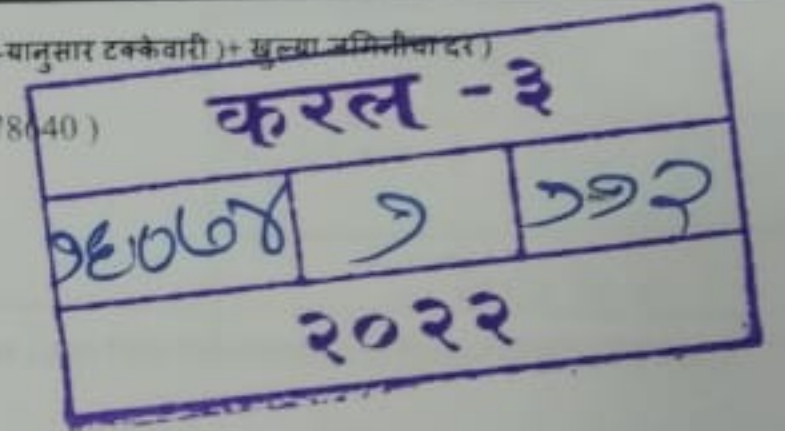 -यानुसार टक्केवारी )+ खुल्या जमिनीचा दर )
78640 )
करल - ३
१६०७४ १ ११२
२०२२